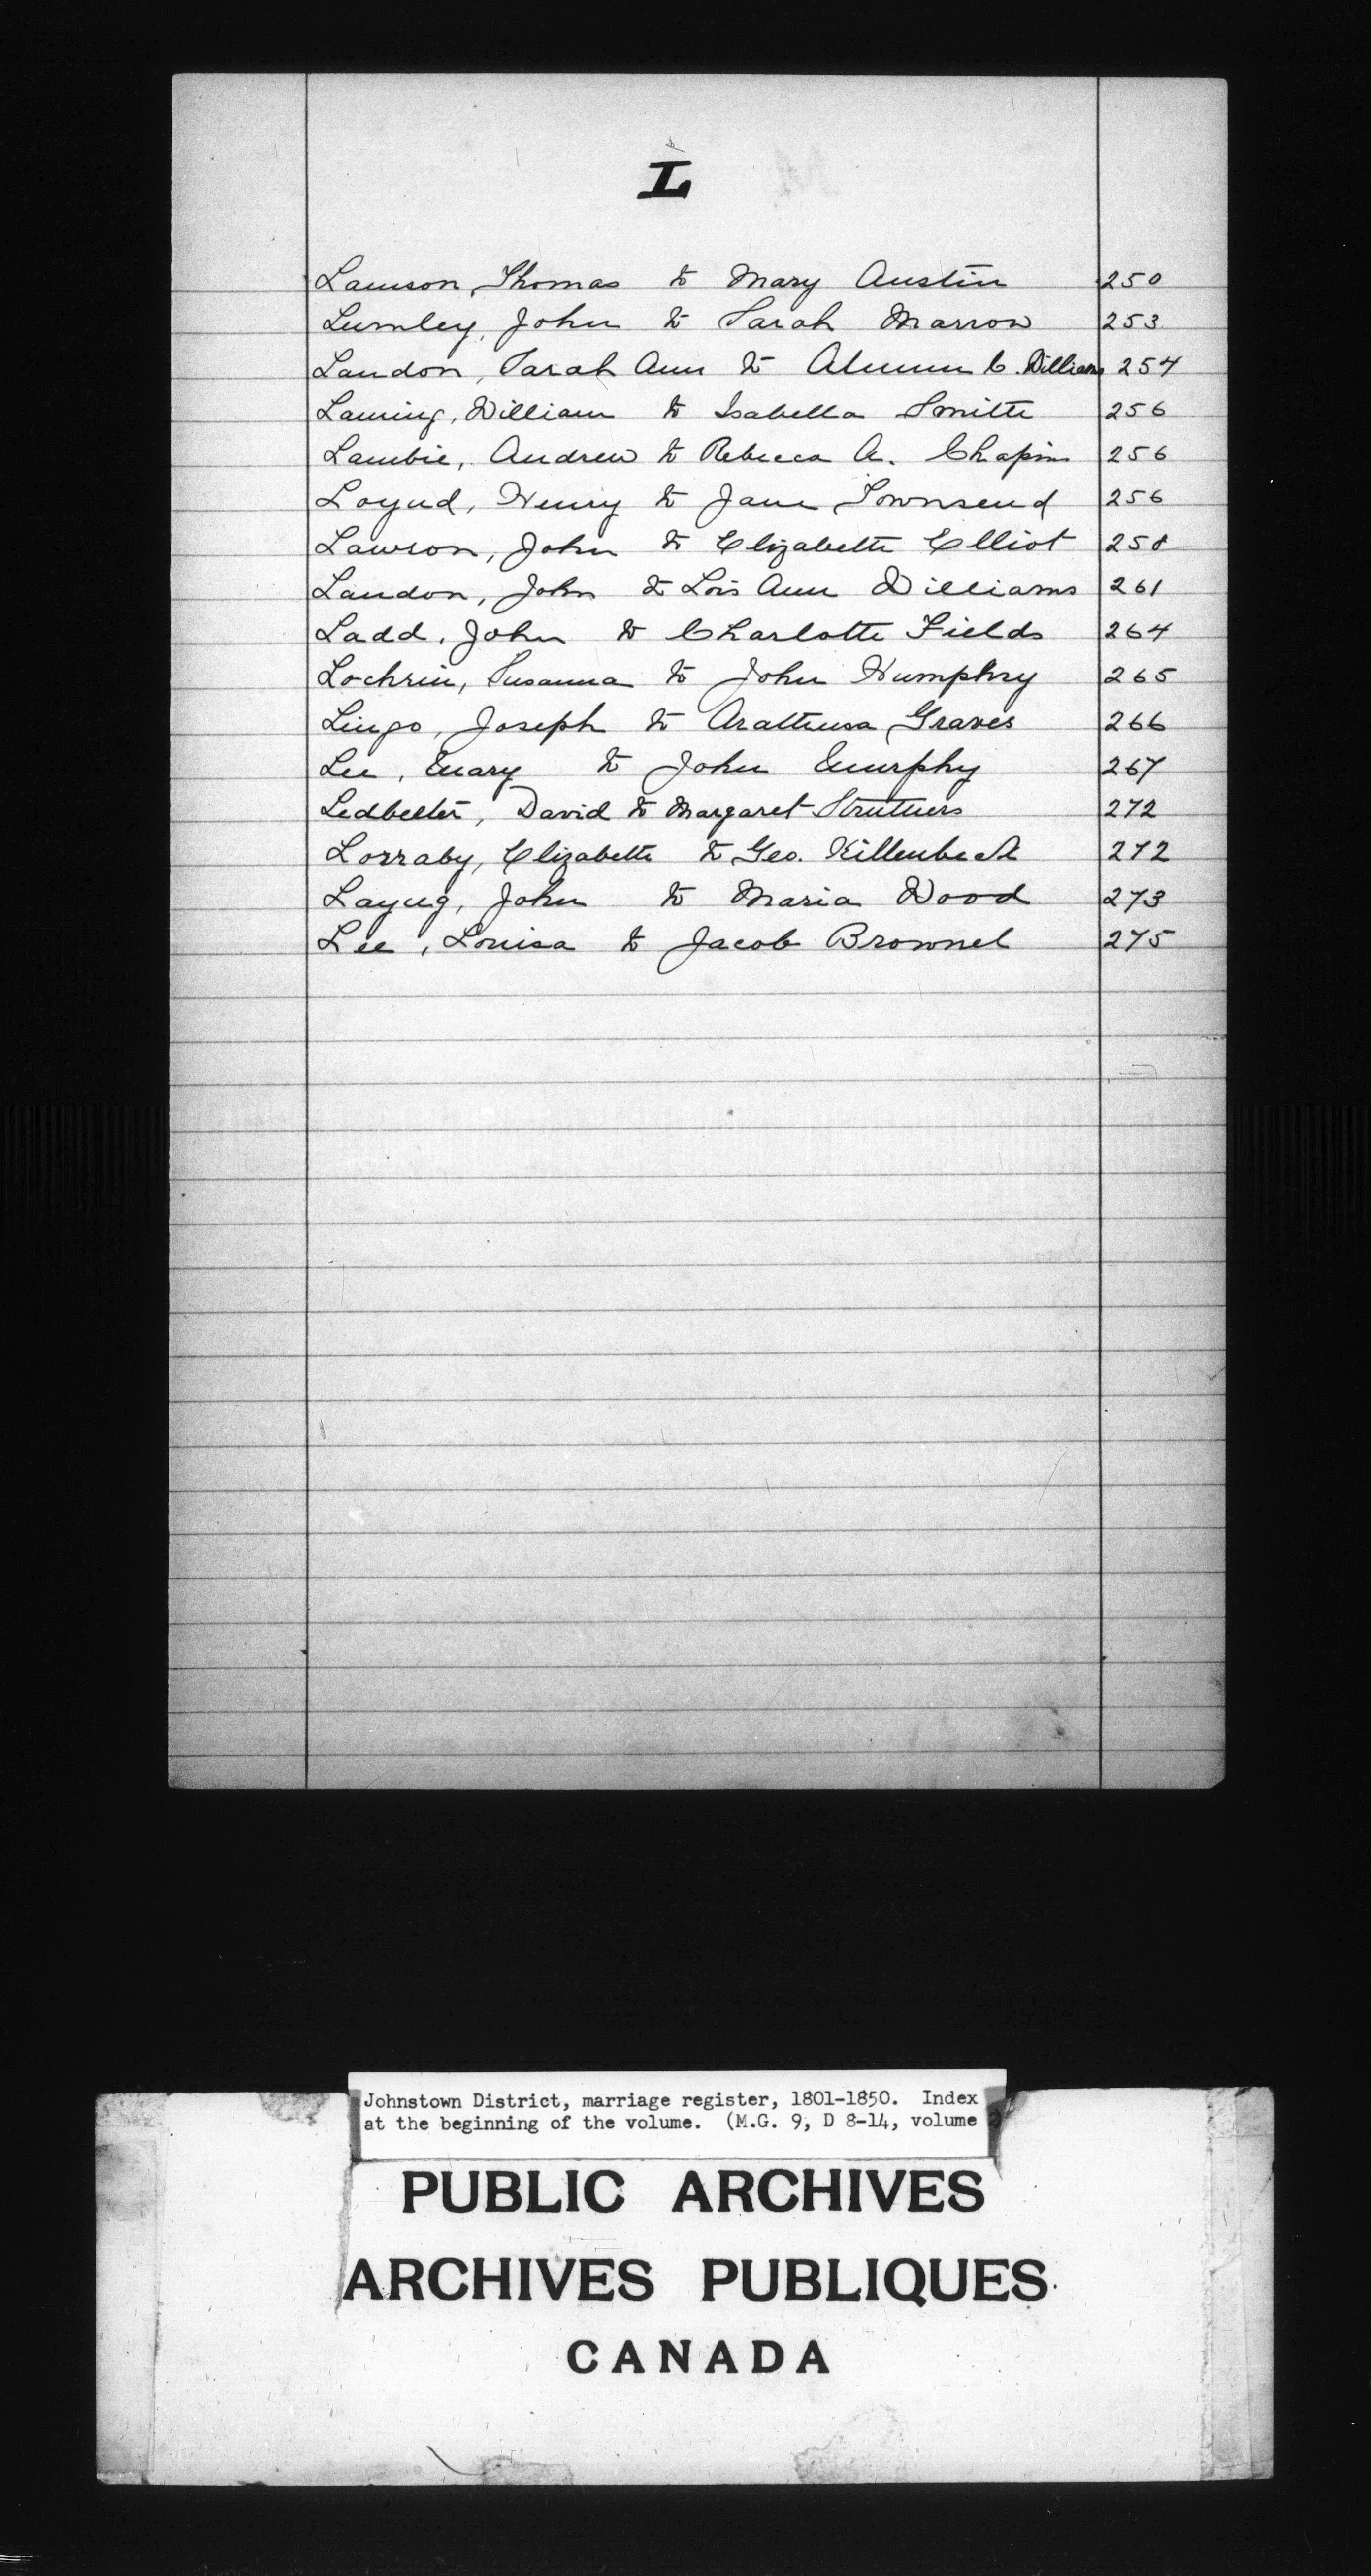 L
Lamson, Thomas to Mary Austin 250
Lumley, John to Sarah Marrow 253
Landon, Sarah Ann to C. Williams 254
Laming, William to Isabella Smith 256
Lambie, Andrew to Rebecca A. Chapin 256
Loynd, Henry to Jane Townsend 256
Lawson, John to Elizabeth Elliot 258
Landon, John to Lois Ann Williams 261
Ladd, John to Charlotte Fields 264
Lochrin, Susanna to John Humphry 265
Lingo, Joseph to Arathusa Graves 266
Lee, Mary to John Murphy 267
Ledbetter, David to Margaret Struthers 272
Lorraby, Elizabeth to Geo. Killenbeck 272
Layng, John to Maria Wood 273
Lee, Louisa to Jacob Brownel 275
Johnstown District, marriage register, 1801-1850. Index
at the beginning of the volume. (M.G. 9, D 8-14, volume
PUBLIC ARCHIVES
ARCHIVES PUBLIQUES
CANADA